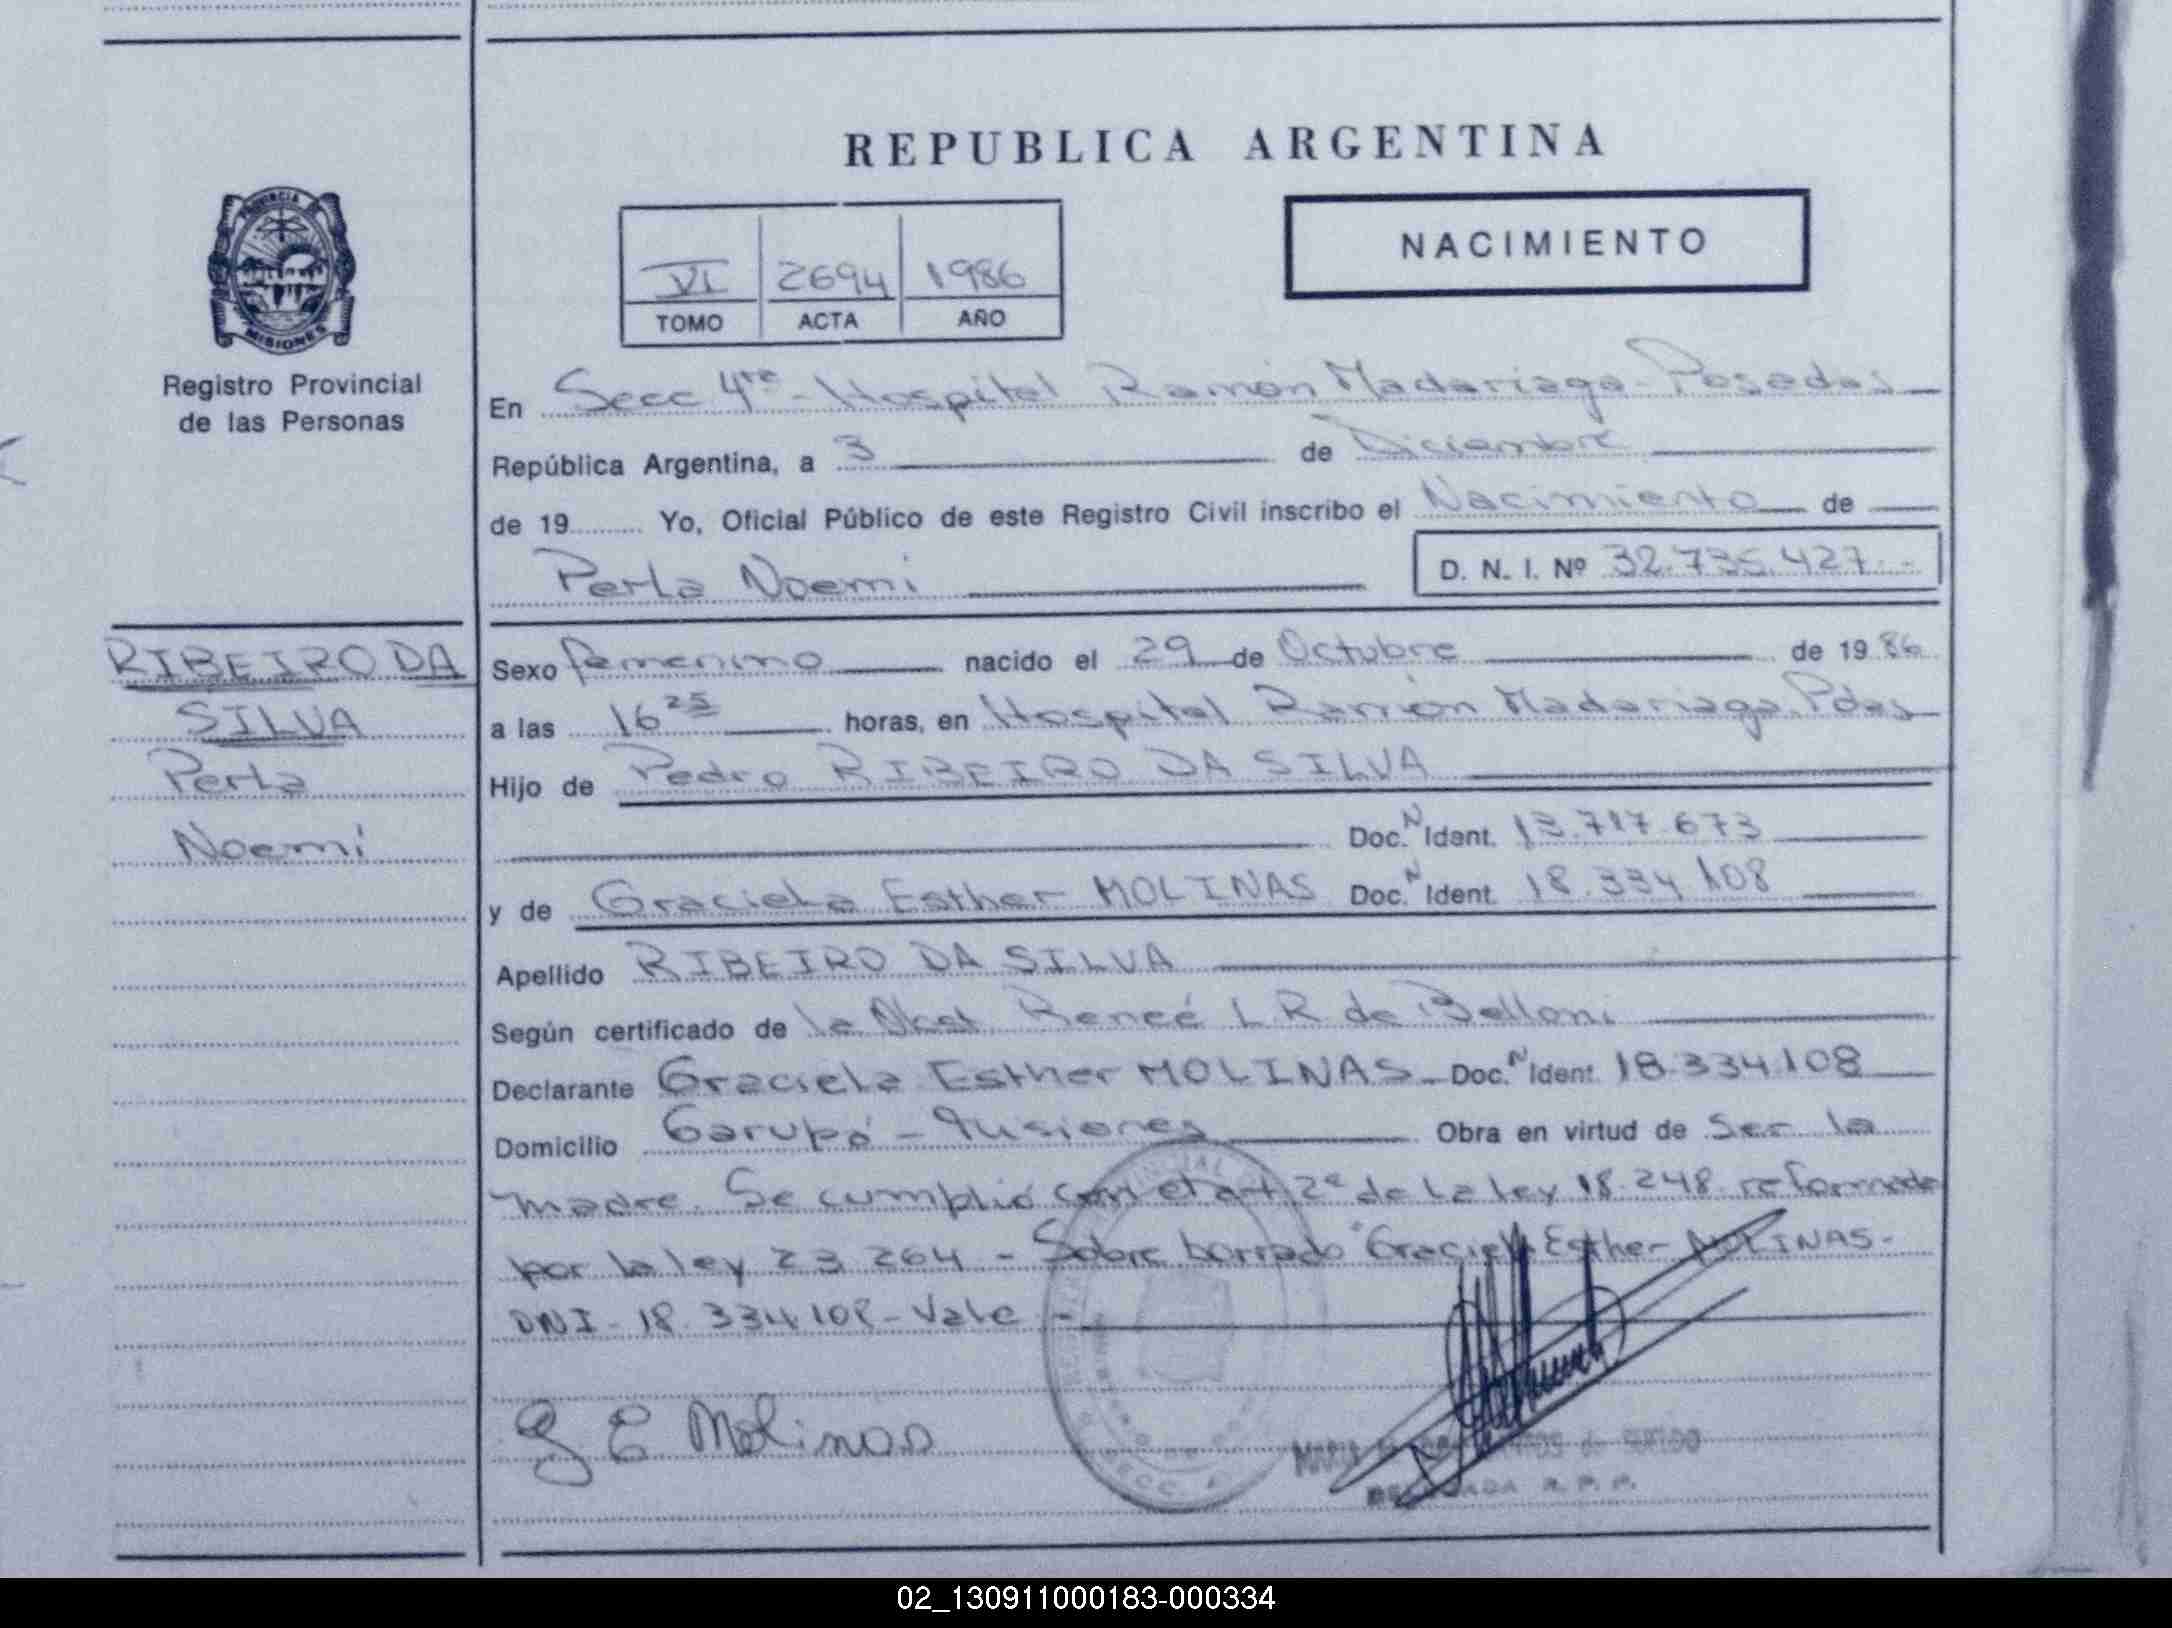 REPUBLICA ARGENTINA
NACIMIENTO
VI 2694 1986
TOMO ACTA AÑO
PROVINCIA DE
MISIONES
Registro Provincial
de las Personas
En Secc 4ta - Hospital Ramón Madariaga - Posadas
República Argentina, a 3 de Diciembre
de 19 Yo, Oficial Público de este Registro Civil inscribo el Nacimiento de
Perla Noemi D. N. I. Nº 32.735.427.-
RIBEIRO DA
SILVA
Perla
Noemi
Sexo femenino nacido el 29 de Octubre de 1986
a las 16 25 horas, en Hospital Ramón Madariaga. Pdas
Hijo de Pedro RIBEIRO DA SILVA
Doc. N Ident. 13.717.673
y de Graciela Esther MOLINAS Doc. N Ident. 18.334.108
Apellido RIBEIRO DA SILVA
Según certificado de la Reneé L R de Belloni
Declarante Graciela Esther MOLINAS Doc. N Ident. 18.334.108
Domicilio Garupá - Misiones Obra en virtud de Ser la
madre. Se cumplió con el art 2º de la ley 18.248 reformada
por la ley 23.264 - Sobre borrado "Graciela Esther MOLINAS -
DNI - 18.334.108 - Vale -
G E Molinas
R. P. P.
02_130911000183-000334